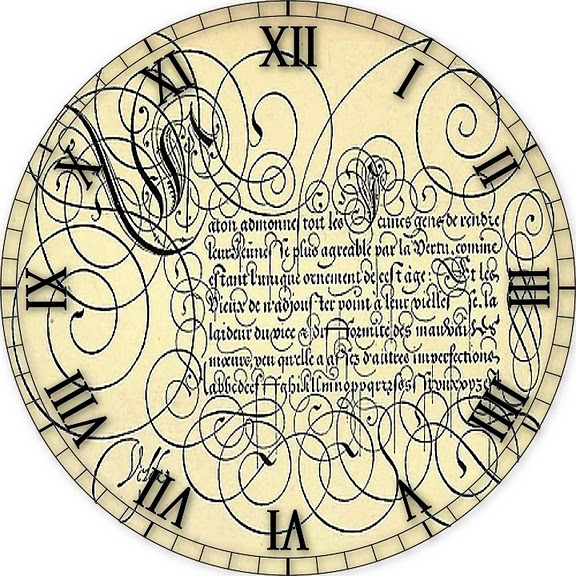 XII
I
II
III
IIII
V
VI
VII
VIII
IX
X
XI
aton admonnet tout les Jeunes gens de rendre
leur Jeunesse plus agreable par la Vertu, comme
estant l'unique ornement de cest age : Et les
Vieux de n'adjouster point a leur vieillesse la
laideur du vice & Difformite des mauvaises
mœurs, veu qu'elle a assez d'autres imperfections